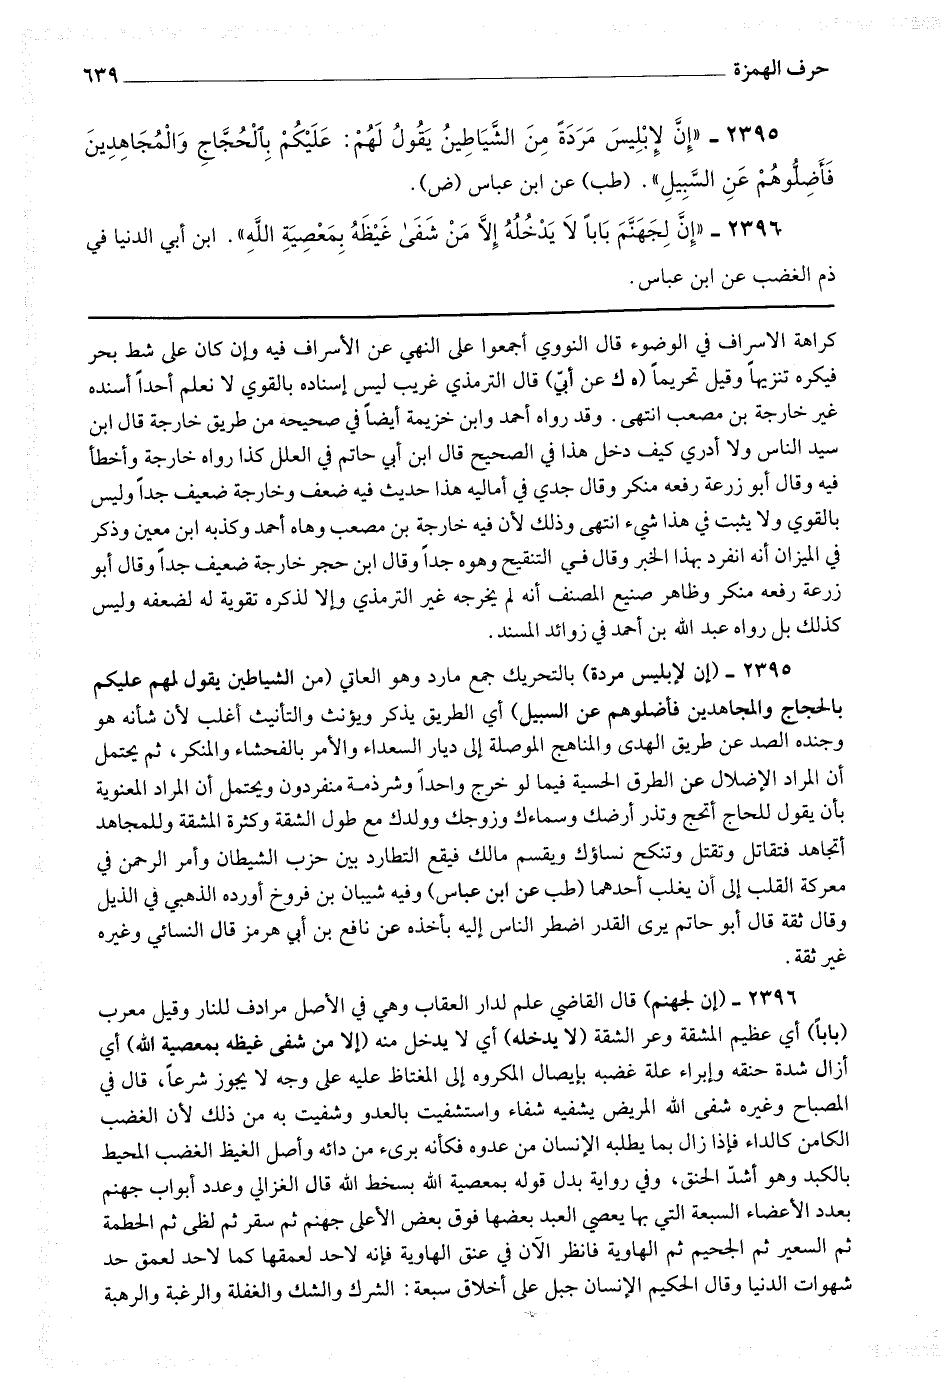 حرف الهمزة ٦٣٩
٢٣٩٥ ـ «إِنَّ لِإِبْلِيسَ مَرَدَةً مِنَ الشَّيَاطِينُ يَقُولُ لَهُمْ: عَلَيْكُمْ بِٱلْحُجَّاجِ وَالْمُجَاهِدِينَ
فَأَضِلُّوهُمْ عَنِ السَّبِيلِ». (طب) عن ابن عباس (ض).
٢٣٩٦ ـ «إِنَّ لِجَهَنَّمَ بَاباً لَا يَدْخُلُهُ إِلَّا مَنْ شَفَىٰ غَيْظَهُ بِمَعْصِيَةِ اللَّهِ». ابن أبي الدنيا في
ذم الغضب عن ابن عباس.
كراهة الاسراف في الوضوء قال النووي أجمعوا على النهي عن الأسراف فيه وإن كان على شط بحر
فيكره تنزيهاً وقيل تحريماً (ه ك عن أبيّ) قال الترمذي غريب ليس إسناده بالقوي لا نعلم أحداً أسنده
غير خارجة بن مصعب انتهى. وقد رواه أحمد وابن خزيمة أيضاً في صحيحه من طريق خارجة قال ابن
سيد الناس ولا أدري كيف دخل هذا في الصحيح قال ابن أبي حاتم في العلل كذا رواه خارجة وأخطأ
فيه وقال أبو زرعة رفعه منكر وقال جدي في أماليه هذا حديث فيه ضعف وخارجة ضعيف جداً وليس
بالقوي ولا يثبت في هذا شيء انتهى وذلك لأن فيه خارجة بن مصعب وهاه أحمد وكذبه ابن معين وذكر
في الميزان أنه انفرد بهذا الخبر وقال فـي التنقيح وهوه جداً وقال ابن حجر خارجة ضعيف جداً وقال أبو
زرعة رفعه منكر وظاهر صنيع المصنف أنه لم يخرجه غير الترمذي وإلا لذكره تقوية له لضعفه وليس
كذلك بل رواه عبد الله بن أحمد في زوائد المسند.
٢٣٩٥ ـ (إن لإبليس مردة) بالتحريك جمع مارد وهو العاتي (من الشياطين يقول لهم عليكم
بالحجاج والمجاهدين فأضلوهم عن السبيل) أي الطريق يذكر ويؤنث والتأنيث أغلب لأن شأنه هو
وجنده الصد عن طريق الهدى والمناهج الموصلة إلى ديار السعداء والأمر بالفحشاء والمنكر، ثم يحتمل
أن المراد الإضلال عن الطرق الحسية فيما لو خرج واحداً وشرذمـة منفردون ويحتمل أن المراد المعنوية
بأن يقول للحاج أتحج وتذر أرضك وسماءك وزوجك وولدك مع طول الشقة وكثرة المشقة وللمجاهد
أتجاهد فتقاتل وتقتل وتنكح نساؤك ويقسم مالك فيقع التطارد بين حزب الشيطان وأمر الرحمن في
معركة القلب إلى أن يغلب أحدهما (طب عن ابن عباس) وفيه شيبان بن فروخ أورده الذهبي في الذيل
وقال ثقة قال أبو حاتم يرى القدر اضطر الناس إليه بأخذه عن نافع بن أبي هرمز قال النسائي وغيره
غير ثقة.
٢٣٩٦ ـ (إن لجهنم) قال القاضي علم لدار العقاب وهي في الأصل مرادف للنار وقيل معرب
(باباً) أي عظيم المشقة وعر الشقة (لا يدخله) أي لا يدخل منه (إلا من شفى غيظه بمعصية الله) أي
أزال شدة حنقه وإبراء علة غضبه بإيصال المكروه إلى المغتاظ عليه على وجه لا يجوز شرعاً، قال في
المصباح وغيره شفى الله المريض يشفيه شفاء واستشفيت بالعدو وشفيت به من ذلك لأن الغضب
الكامن كالداء فإذا زال بما يطلبه الإنسان من عدوه فكأنه برىء من دائه وأصل الغيظ الغضب المحيط
بالكبد وهو أشدّ الحنق، وفي رواية بدل قوله بمعصية الله بسخط الله قال الغزالي وعدد أبواب جهنم
بعدد الأعضاء السبعة التي بها يعصي العبد بعضها فوق بعض الأعلى جهنم ثم سقر ثم لظى ثم الحطمة
ثم السعير ثم الجحيم ثم الهاوية فانظر الآن في عنق الهاوية فإنه لاحد لعمقها كما لاحد لعمق حد
شهوات الدنيا وقال الحكيم الإنسان جبل على أخلاق سبعة: الشرك والشك والغفلة والرغبة والرهبة